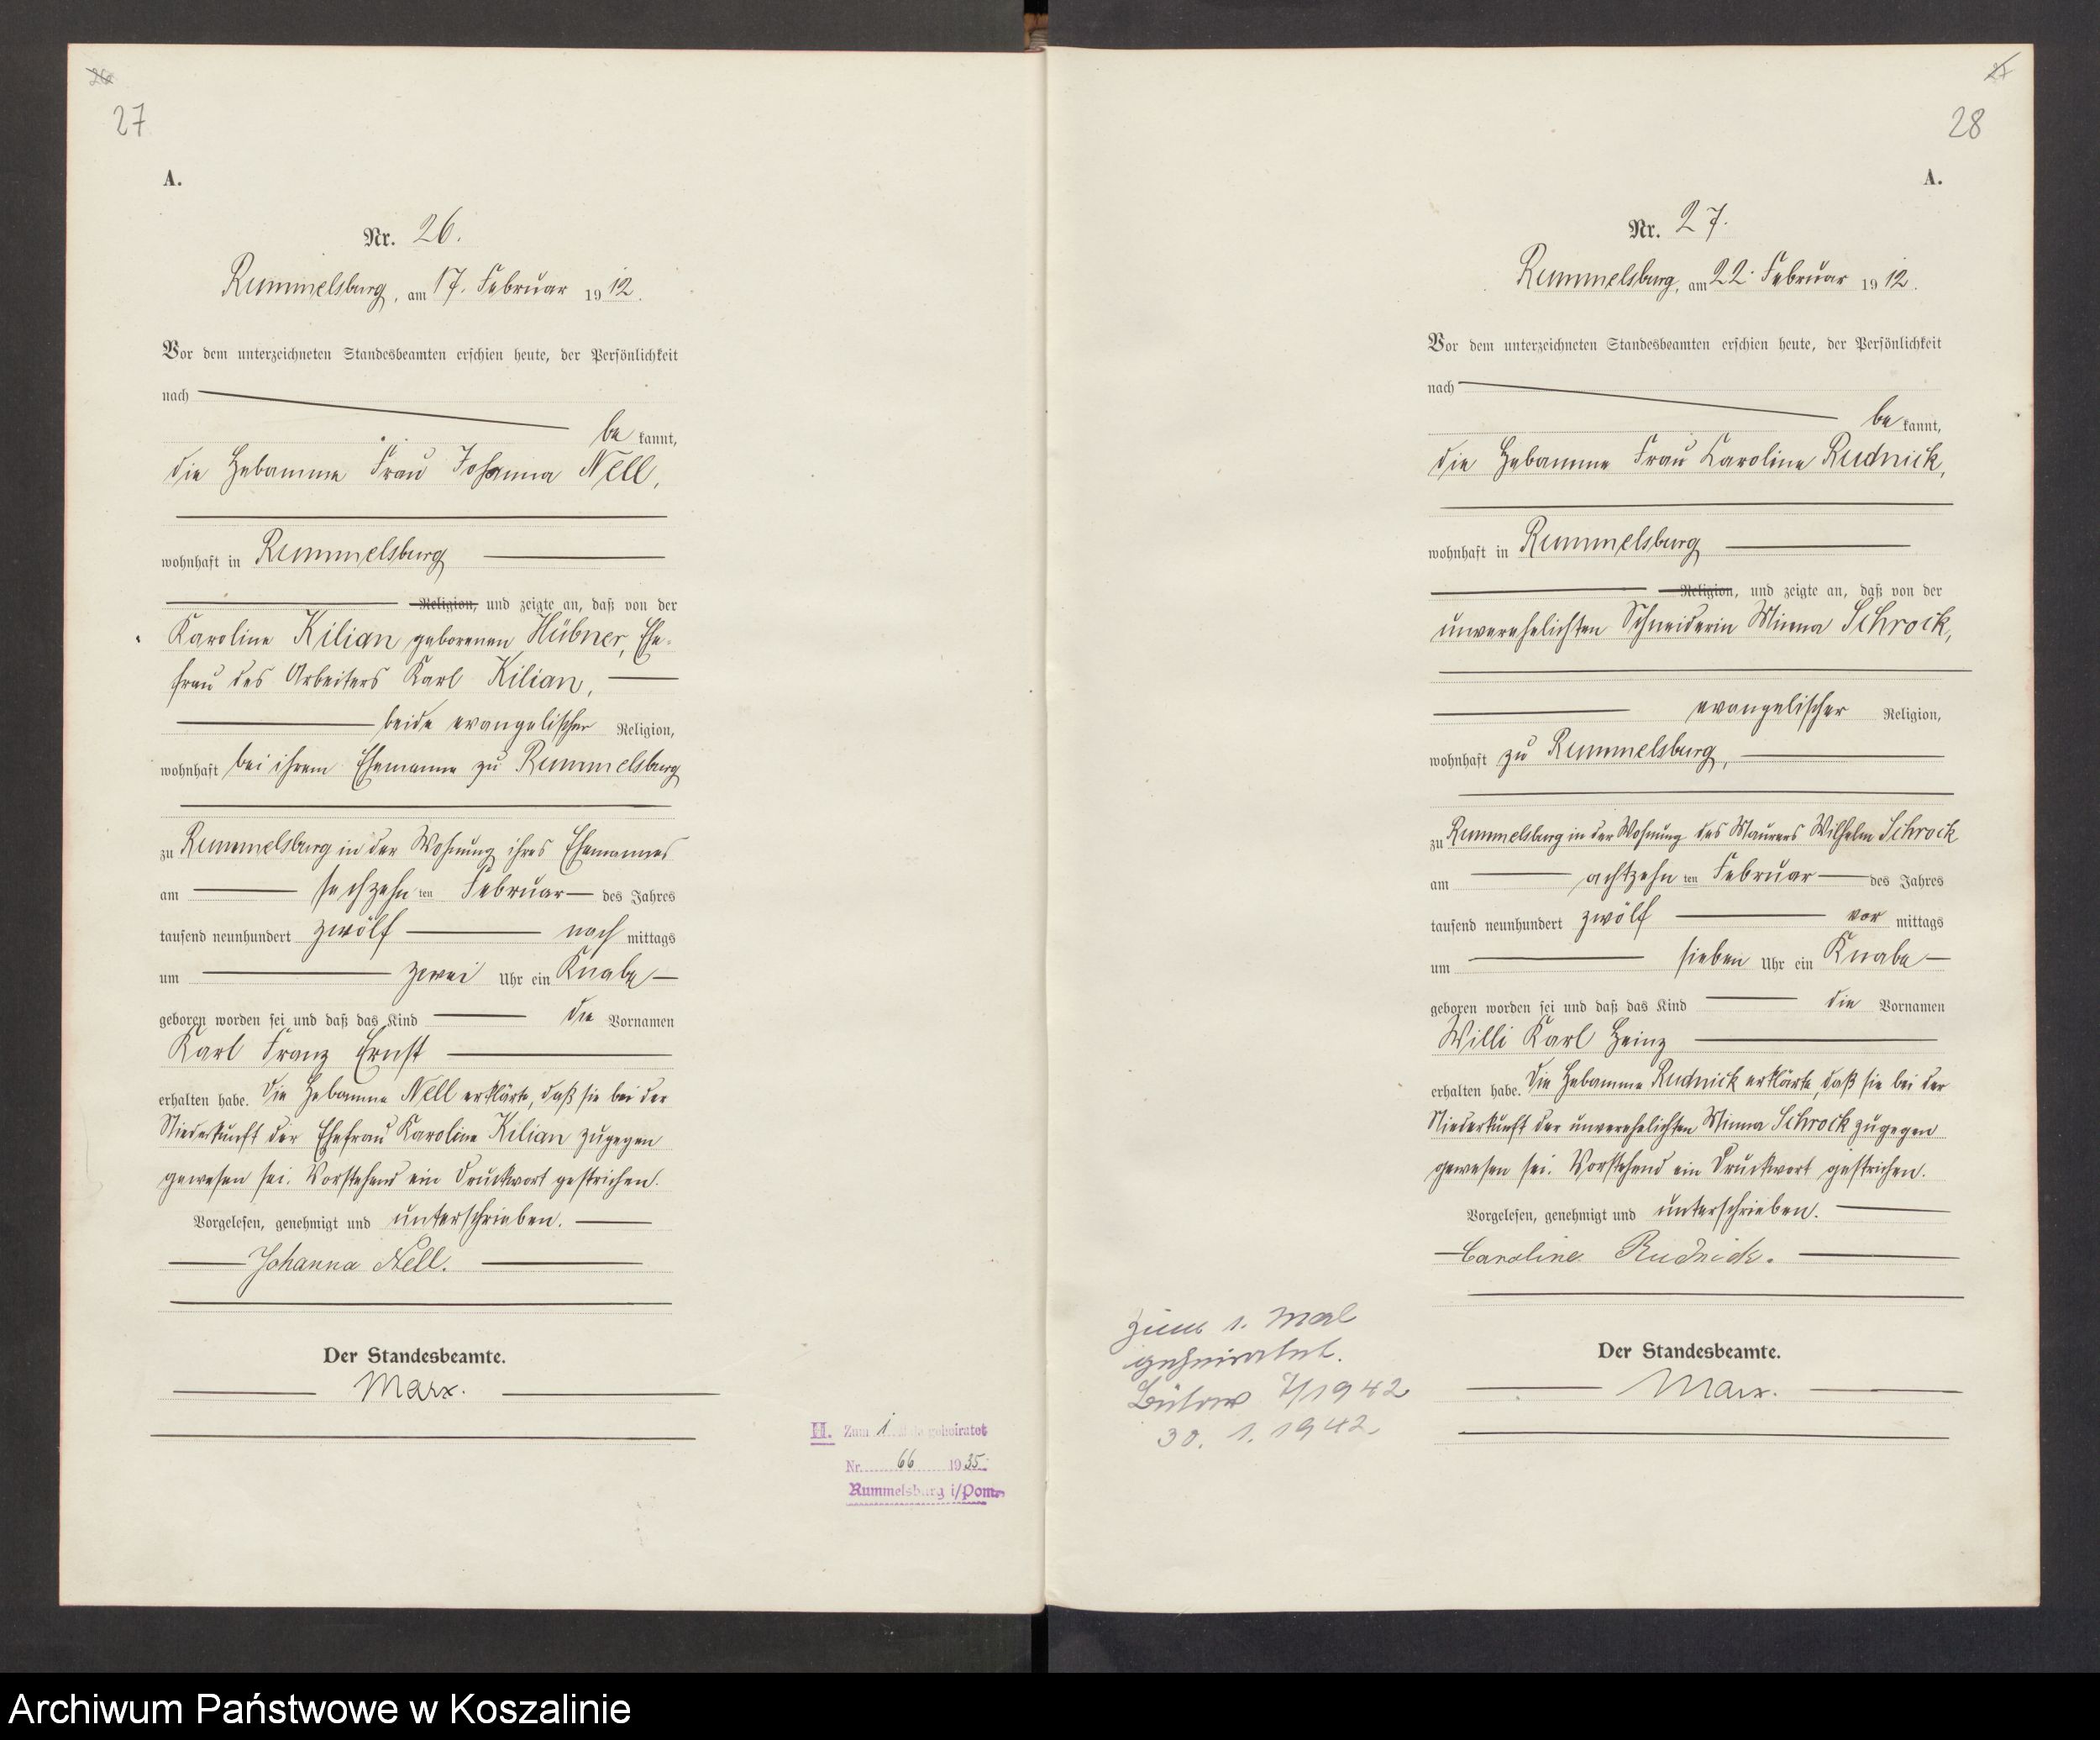 27
A.
Nr. 26.
Rummelsburg, am 17. Februar 1912.
Vor dem unterzeichneten Standesbeamten erschien heute, der Persönlichkeit
nach
bekannt,
die Hebamme Frau Johanna Nell,
wohnhaft in Rummelsburg
Religion, und zeigte an, daß von der
Karoline Kilian geborenen Hübner, Ehe-
frau des Arbeiters Karl Kilian,
beide evangelischer Religion,
wohnhaft bei ihrem Ehemanne zu Rummelsburg
zu Rummelsburg in der Wohnung ihres Ehemannes
am sechzehnten Februar des Jahres
tausend neunhundert zwölf nachmittags
um zwei Uhr ein Knabe
geboren worden sei und daß das Kind die Vornamen
Karl Franz Ernst
erhalten habe. Die Hebamme Nell erklärte, daß sie bei der
Niederkunft der Ehefrau Karoline Kilian zugegen
gewesen sei. Vorstehend ein Druckwort gestrichen.
Vorgelesen, genehmigt und unterschrieben.
Johanna Nell.
Der Standesbeamte.
Marx.
H. Zum 1 Male geheiratet
Nr. 66 1935
Rummelsburg i/Pom.
28
A.
Nr. 27.
Rummelsburg, am 22. Februar 1912.
Vor dem unterzeichneten Standesbeamten erschien heute, der Persönlichkeit
nach
bekannt,
die Hebamme Frau Karoline Rudnick,
wohnhaft in Rummelsburg
Religion, und zeigte an, daß von der
unverehelichten Schneiderin Minna Schrock,
evangelischer Religion,
wohnhaft zu Rummelsburg,
zu Rummelsburg in der Wohnung des Maurers Wilhelm Schrock
am achtzehnten Februar des Jahres
tausend neunhundert zwölf vormittags
um sieben Uhr ein Knabe
geboren worden sei und daß das Kind die Vornamen
Willi Karl Heinz
erhalten habe. Die Hebamme Rudnick erklärte, daß sie bei der
Niederkunft der unverehelichten Minna Schrock zugegen
gewesen sei. Vorstehend ein Druckwort gestrichen.
Vorgelesen, genehmigt und unterschrieben.
Caroline Rudnick.
Der Standesbeamte.
Marx.
Zum 1. Mal
geheiratet.
Bütow 7/1942
30. 1. 1942.
Archiwum Państwowe w Koszalinie